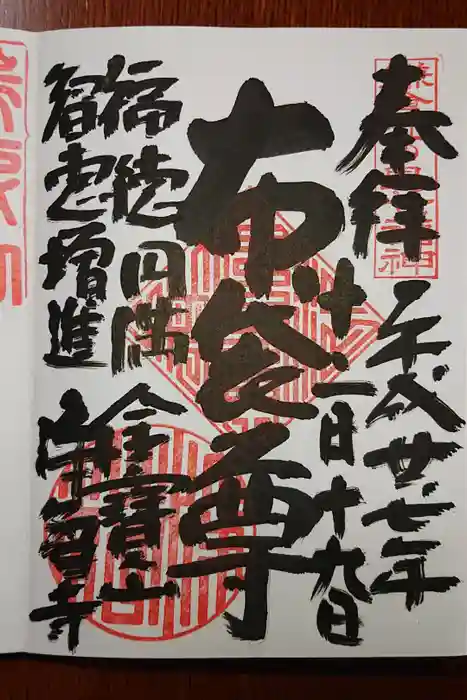 奉拝 平成廿七年
十一月十九日
布袋尊
福徳円満 金寶山
智恵増進 浄智寺